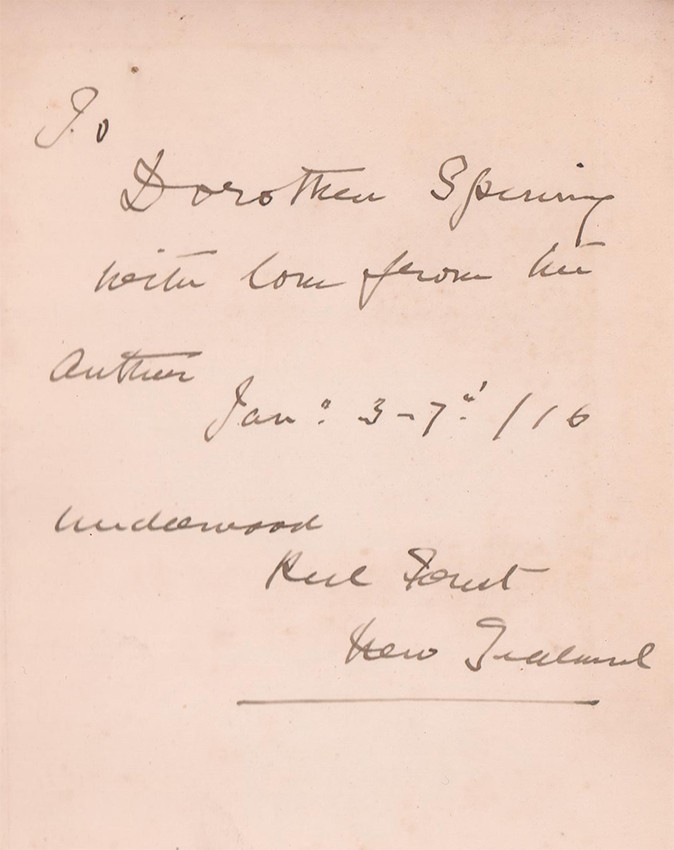 To
Dorothea
with love from the
Author
Jan: 3-7th /16
Underwood
Peel Forest
New Zealand